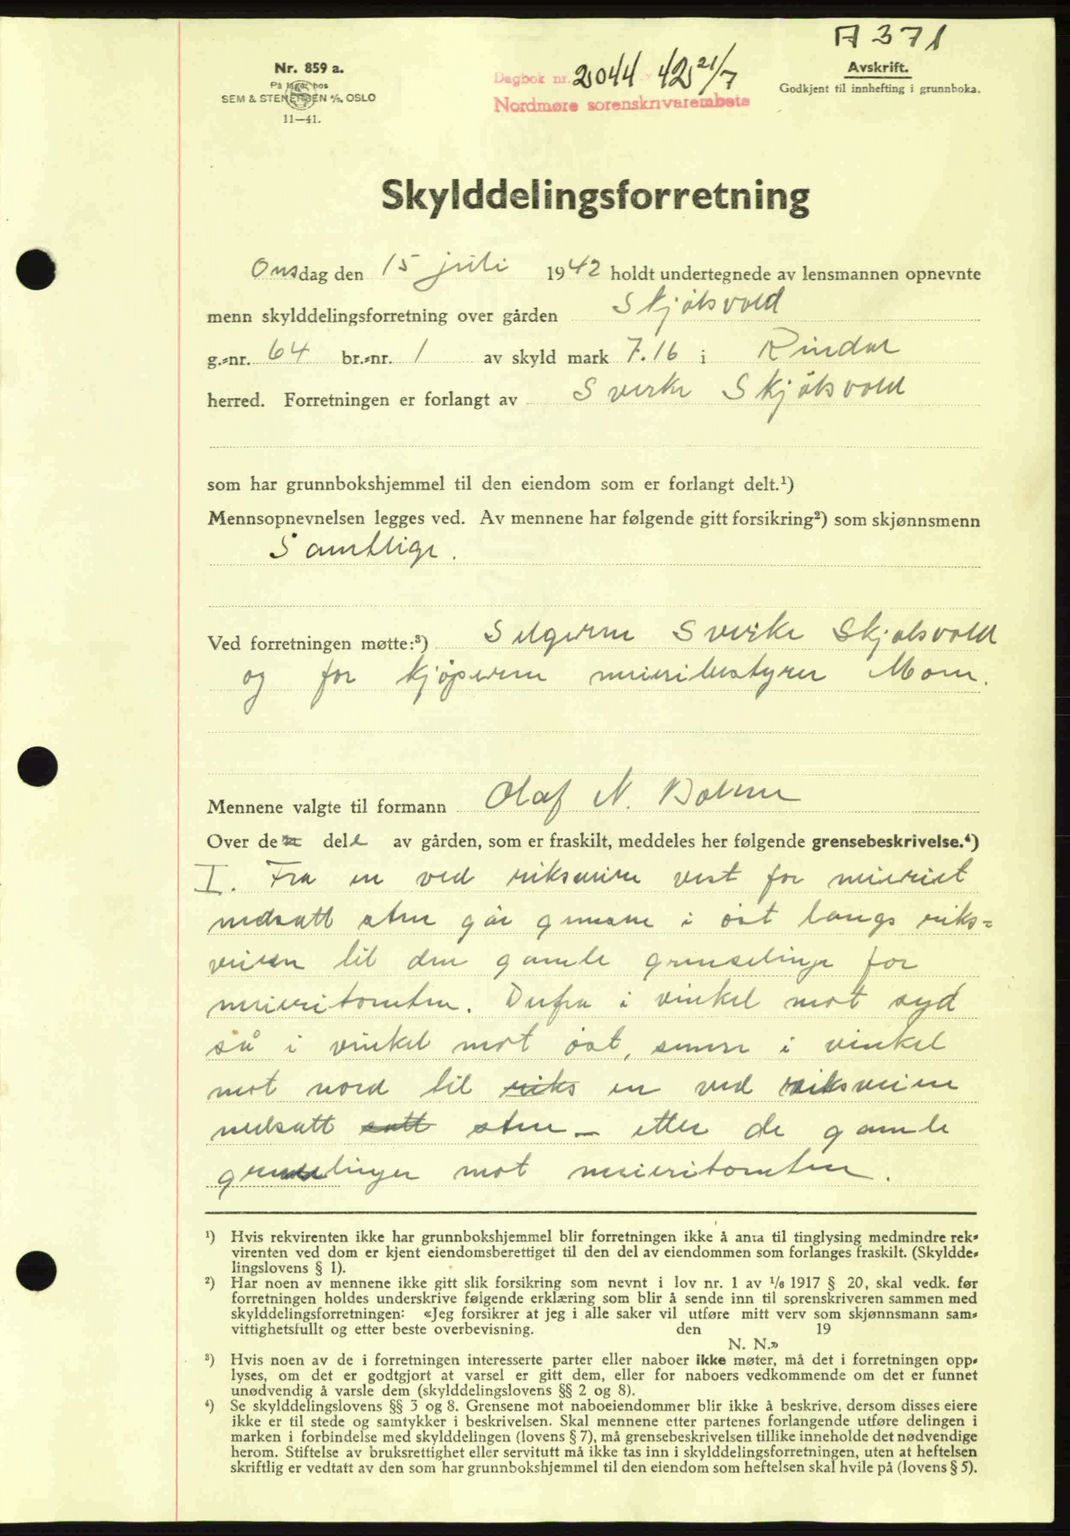 A 371
Nr. 859 a.
På lager hos
SEM & STENERSEN A/S, OSLO
11—41.
Dagbok nr. 2044 - 42 21/7
Nordmøre sorenskrivarembete
Avskrift.
Godkjent til innhefting i grunnboka.
Skylddelingsforretning
Onsdag den 15 juli 1942 holdt undertegnede av lensmannen opnevnte
menn skylddelingsforretning over gården Skjølsvold
g.-nr. 64 br.-nr. 1 av skyld mark 7.16 i Rindal
herred. Forretningen er forlangt av Sverke Skjølsvold
som har grunnbokshjemmel til den eiendom som er forlangt delt.¹)
Mennsopnevnelsen legges ved. Av mennene har følgende gitt forsikring²) som skjønnsmenn
Samtlige.
Ved forretningen møtte:³) Selgeren Sverke Skjølsvold
og for kjøperen meieribestyrer Moen.
Mennene valgte til formann Olaf N. Bolme
Over de dele av gården, som er fraskilt, meddeles her følgende grensebeskrivelse.⁴)
I. Fra en ved riksveien vest for meieriet
nedsatt sten går grensene i øst langs riks=
veien til den gamle grenselinje for
meieritomten. Derfra i vinkel mot syd
så i vinkel mot øst, senere i vinkel
mot nord til riks en ved riksveien
nedsatt satt sten — etter de gamle
grenselinjer mot meieritomten.
¹) Hvis rekvirenten ikke har grunnbokshjemmel blir forretningen ikke å anta til tinglysing medmindre rek-
virenten ved dom er kjent eiendomsberettiget til den del av eiendommen som forlanges fraskilt. (Skyldde-
lingslovens § 1).
²) Har noen av mennene ikke gitt slik forsikring som nevnt i lov nr. 1 av 1/6 1917 § 20, skal vedk. før
forretningen holdes underskrive følgende erklæring som blir å sende inn til sorenskriveren sammen med
skylddelingsforretningen: «Jeg forsikrer at jeg i alle saker vil utføre mitt verv som skjønnsmann sam-
vittighetsfullt og etter beste overbevisning. den 19
N. N.»
³) Hvis noen av de i forretningen interesserte parter eller naboer ikke møter, må det i forretningen opp-
lyses, om det er godtgjort at varsel er gitt dem, eller for naboers vedkommende om det er funnet
unødvendig å varsle dem (skylddelingslovens §§ 2 og 8).
⁴) Se skylddelingslovens §§ 3 og 8. Grensene mot naboeiendommer blir ikke å beskrive, dersom disses eiere
ikke er til stede og samtykker i beskrivelsen. Skal mennene etter partenes forlangende utføre delingen i
marken i forbindelse med skylddelingen (lovens § 7), må grensebeskrivelsen tillike inneholde det nødvendige
herom. Stiftelse av bruksrettighet eller servitutt må ikke tas inn i skylddelingsforretningen, uten at heftelsen
skriftlig er vedtatt av den som har grunnbokshjemmel til den eiendom som heftelsen skal hvile på (lovens § 5).